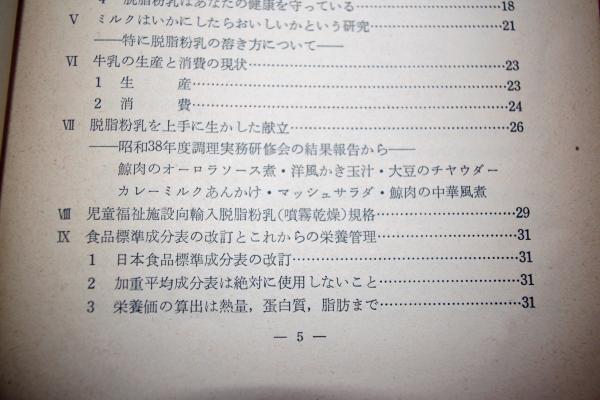 4 脱脂粉乳はあなたの健康を守っている…………18
Ⅴ ミルクはいかにしたらおいしいかという研究…………21
――特に脱脂粉乳の溶き方について――
Ⅵ 牛乳の生産と消費の現状…………23
1 生 産…………23
2 消 費…………24
Ⅶ 脱脂粉乳を上手に生かした献立…………26
――昭和38年度調理実務研修会の結果報告から――
鯨肉のオーロラソース煮・洋風かき玉汁・大豆のチヤウダー
カレーミルクあんかけ・マッシュサラダ・鯨肉の中華風煮
Ⅷ 児童福祉施設向輸入脱脂粉乳(噴霧乾燥)規格…………29
Ⅸ 食品標準成分表の改訂とこれからの栄養管理…………31
1 日本食品標準成分表の改訂…………31
2 加重平均成分表は絶対に使用しないこと…………31
3 栄養価の算出は熱量，蛋白質，脂肪まで…………31
― 5 ―